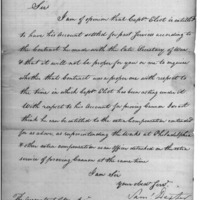 Sir
I am of opinion that Capt. Eliot is entitled
to have his account settled for past services according to
the Contract he made with the late Secretary of War
& that it will not be proper for you or me to enquire
whether that Contract was a proper one with respect to
the time in which Capt. Eliot has been acting under it
With respect to his account for proving Cannon I do not
think he can be entitled to the extra Compensation
for as above or superintending the works at Philadelphia
& other extra compensation was often attended on the extra
service of proving Cannon at the same time
I am Sir
your obed. Serv.